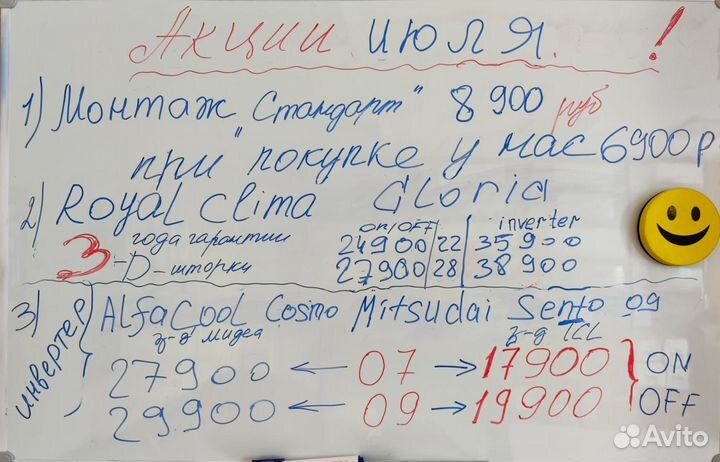 Акции июля !
1) Монтаж "Стандарт" 8900 руб
при покупке у нас 6900 р
2) Royal Clima Gloria
3 года гарантии on/OFF inverter
24900 22 35900
3-D-шторки 27900 28 38900
3) инвертер AlfaCool Cosmo Mitsudai Sento 09
з-д Мидеа з-д TCL
27900 ← 07 → 17900 ON
29900 ← 09 → 19900 OFF
Avito